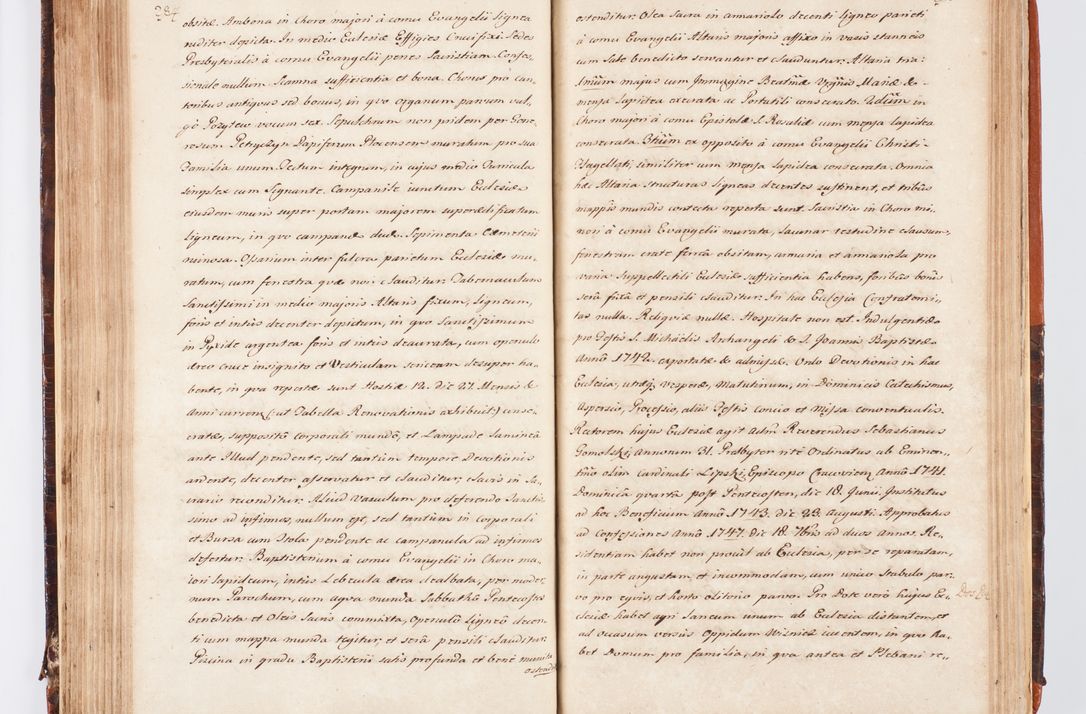 284
obsitæ. Ambona in Choro majori à cornu Evangelii lignea
ruditer depicta. In medio Eulesiæ Effigies Crucifixi. Sedes
Presbyteralis à cornu Evangelii penes Sacristiam. Confes-
sionale nullum. Scamna sufficientia et bona. Chorus pro can-
toribus antiqvus sed bonus, in qvo organum parvum vul-
gò Pozytew vocum sex. Sepulchrum non pridem per Gene-
rosum Petryczyn Dapiferum Plocensem muratum pro sua
Familia unum. Tectum integrum, in cujus medio Turricula
simplex cum Signante. Campanile iunctum Eulesiæ
eiusdem muris super portam majorem superædificatum
ligneum, in qvo campanæ duæ. Sepimenta Cæmeterii
ruinosa. Ossarium inter fulcra parietum Eulesiæ mu-
ratum, cum fenestra qvæ non clauditur. Tabernaculum
Sanctissimi in medio majoris Altaris fixum, ligneum,
foris et intùs decenter depictum, in qvo Sanctissimum
in Pyxide argentea foris et intùs deaurata, cum operculo
æreo cruce insignito et Vesticulam sericeam desuper ha-
bente, in qva repertæ sunt Hostiæ 12. die 27. Mensis &
Anni curren: (ut Tabella Renovationis exhibuit) conse-
cratæ, supposito corporali mundo, et Lampade laminea
ante Illud pendente, sed tantùm tempore Devotionis
ardente, decenter asservatur et clauditur, clavis in Sa-
crario reconditur. Aliud Vasculum pro deferendo Sanctis-
simo ad infirmos, nullum est, sed tantùm in corporali
et Bursa cum Stola pendente ac campanulâ ad infirmos
defertur. Baptisterium à cornu Evangelii in Choro ma-
iori lapideum, intùs Lebecula ærea dealbata, per moder-
num Parochum, cum aqva munda Sabbatho Pentecostes
benedicta et Oleis Sacris commixta, Operculo ligneo decen-
ti cum mappa munda tegitur et serâ pensili clauditur.
Piscina in gradu Baptisterii satis profunda et benè munita
ostendi-
ostenditur. Olea Sacra in armariolo decenti ligneo parieti
à cornu Evangelii Altaris majoris affixo in vasis stanneis
cum Sale benedicto servantur et clauduntur. Altaria tria:
1mum majus cum Immagine Beatmæ Virginis Mariæ &
mensa lapidea execrata ac Portatili consecrato. 2dum in
Choro majori à cornu Epistolæ S. Rosaliæ cum mensa lapidea
consecrata. 3tium ex opposito à cornu Evangelii Christi
Flagellati, similiter cum mensa lapidea consecrata. Omnia
hæc Altaria structuras ligneas decentes sustinent, et tribus
mappis mundis contecta reperta sunt. Sacristia in Choro mi-
nori à cornu Evangelii murata, lacunar testudine clausum,
fenestram crate ferreâ obsitam, armaria et armariola pro
varia Suppellectili Eulesiæ sufficientia habens, foribus bonis
serâ fixâ et pensili clauditur. In hac Eulesia Confraterni-
tas nulla. Reliqviæ nullæ. Hospitale non est. Indulgentiæ
pro Festis S. Michaëlis Archangeli & S. Joannis Baptistæ
Annô 1742. exportatæ & admissæ. Ordo Devotionis in hac
Eulesia, utræq; vesperæ, Matutinum, in Dominicis Catechismus,
Aspersio, Processio, aliis Festis concio et Missa conventualis.
Rectorem hujus Eulesiæ agit Adm̃ Reverendus Sebastianus
Gomolski, Annorum 31. Presbyter ritè Ordinatus ab Eminen-
tmo olim Cardinali Lipski, Episcopo Cracovien, Annô 1741.
Dominicâ qvartâ post Pentecosten, die 18. Junii. Institutus
ad hoc Beneficium Annô 1743. die 23. Augusti. Approbatus
ad Confessiones Annô 1747. Die 18. 7bris ad duos annos. Re-
sidentiam habet non procul ab Eulesia, per se reparatam,
in parte angustam et incommodam, cum unico stabulo par-
vo pro eqvis, et horto olitorio parvo. Pro Dote verò hujus Eu-
lesiæ habet agri laneum unum ab Eulesia distantem, et
ad occasum versùs Oppidum Wisnicz euentem, in qvo ha-
bet Domum pro familia, in qva antea et Plebani re-